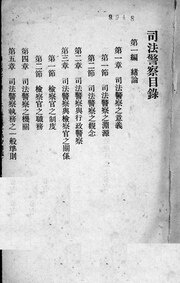 9948
司法警察目錄
第一編 緖論
第一章 司法警察之意義
第一節 司法警察之淵源
第二節 司法警察之觀念
第二章 司法警察與行政警察
第三章 司法警察與檢察官之關係
第一節 檢察官之制度
第二節 檢察官之職務
第四章 司法警察之機關
第五章 司法警察執務之一般準則